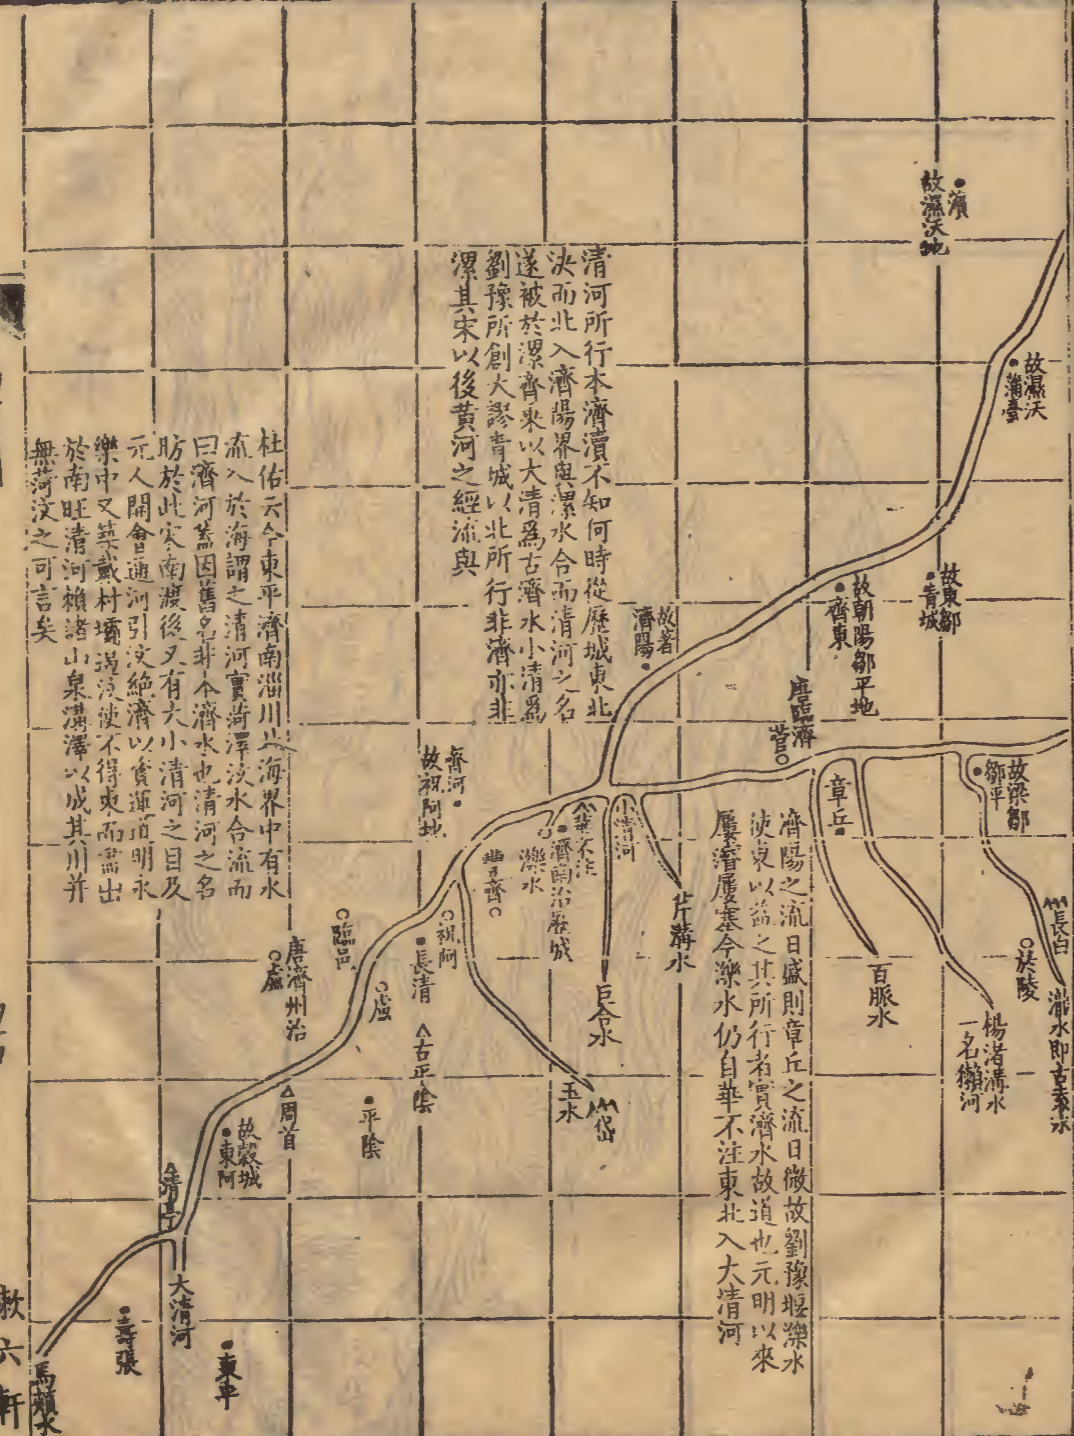 濱
故濕沃地
故濕沃
蒲臺
故東鄒
青城
故朝陽鄒平地
齊東
唐臨濟
菅
故梁鄒
鄒平
長白
於陵
瀧水即古袁水
楊渚溝水
一名獺河
百脈水
章丘
濟陽之流日盛則章丘之流日微故劉豫堰濼水
使東以益之其所行者實濟水故道也元明以來
屢濬屢塞今濼水仍自華不注東北入大清河
故著
濟陽
清河所行本濟瀆不知何時從歷城東北
決而北入濟陽界與漯水合而清河之名
遂被於漯齊乘以大清爲古濟水小清爲
劉豫所創大謬青城以北所行非濟亦非
漯其宋以後黄河之經流與
芹溝水
小清河
華不注
巨合水
濟南治歷城
濼水
岱
玉水
豐齊
齊河
故祝阿地
祝阿
長清
古平陰
盧
平陰
臨邑
唐濟州治
盧
周首
杜佑云今東平濟南淄川北海界中有水
流入於海謂之清河實菏澤汶水合流而
曰濟河蓋因舊名非本濟水也清河之名
昉於此宋南渡後又有大小清河之目及
元人開會通河引汶絶濟以資運道明永
樂中又築戴村壩遏汶使不得東而盡出
於南旺清河賴諸山泉溝澤以成其川并
無菏汶之可言矣
故穀城
東阿
清亭
大清河
東平
壽張
馬頰水
漱六軒